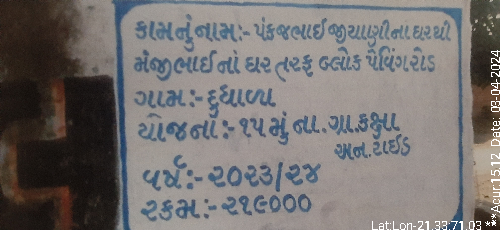 કામનું નામ:- પંકજભાઈ જીયાણીના ઘરથી
મંજીભાઈનાં ઘર તરફ બ્લોક પેવિંગ રોડ
ગામ:- દુધાળા
યોજના:- ૧૫ મું ના. ગ્રા. કક્ષા
અન. ટાઈડ
વર્ષ:- ૨૦૨૩/૨૪
રકમ:- ૨૧૯૦૦૦
Lat:Lon-21.33:71.03 ***Acur:15.12, Date: 03-04-2024